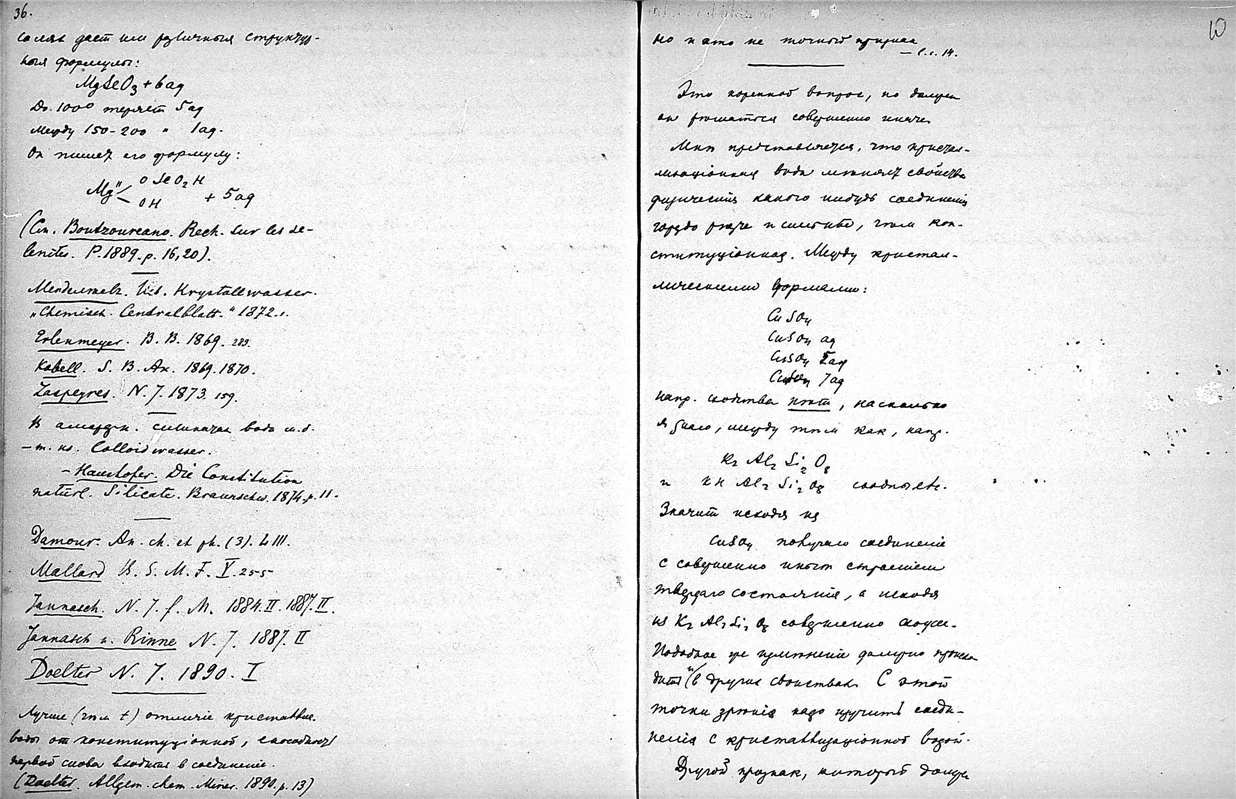 36.
солямъ даетъ или различныя структур-
ныя формулы:
MgSeO3 + 6 aq
До 100° теряетъ 5 aq
Между 150-200 " 1 aq.
Он пишетъ его формулу:
Mg" < O SeO2 H
OH + 5 aq
(См. Boutzoureano. Rech. sur les se-
lenites. P. 1889. p. 16, 20).
Krystallwasser.
"Chemisch. Centralblatt." 1872.
Erlenmeyer. B. B. 1869. 289.
Kobell. S. B. Ak. 1869. 1870.
N. J. 1873. 159.
В вода
- т. н. Colloidwasser.
- Haushofer. Die Constitution
naturl. Silicate. Braunschw. 1874. p. 11.
Damour. An. ch. et ph. (3). LIII.
Mallard B. S. M. F. V. 255
Jannasch. N. J. f. M. 1884. II. 1887. II.
Jannasch u. Rinne N. J. 1887. II
Doelter N. J. 1890. I
Лучше (чѣмъ t) отличіе кристаллиз.
воды от конституціонной, способность
первой снова входить в соединеніе.
(Doelter. Allgem. chem. Miner. 1890. p. 13)
10
но и это не точный признак
- l. c. 14.
Это коренной вопрос, но должен
он рѣшаться совершенно иначе.
Мнѣ представляется, что кристал-
лизаціонная вода мѣняетъ свойства
физическія какого нибудь соединенія
гораздо рѣзче и сильнѣе, чѣм кон-
ституціонная. Между кристал-
лическими формами:
CuSO4
CuSO4 aq
CuSO4 5 aq
CuSO4 7 aq
напр. сходства нѣтъ, насколько
я знаю, между тѣм как, напр.
K2 Al2 Si2 O8
и KH Al2 Si2 O8 сходны etc.
Значит исходя из
CuSO4 получаю соединеніе
с совершенно иным строеніем
твердаго состоянія, а исходя
из K2 Al2 Si2 O8 совершенно сходн.
Подобное же измѣненіе должно происхо-
дить и в других свойствах. С этой
точки зрѣнія надо изучить соеди-
ненія с кристаллизаціонной водой.
Другой признак, который должен